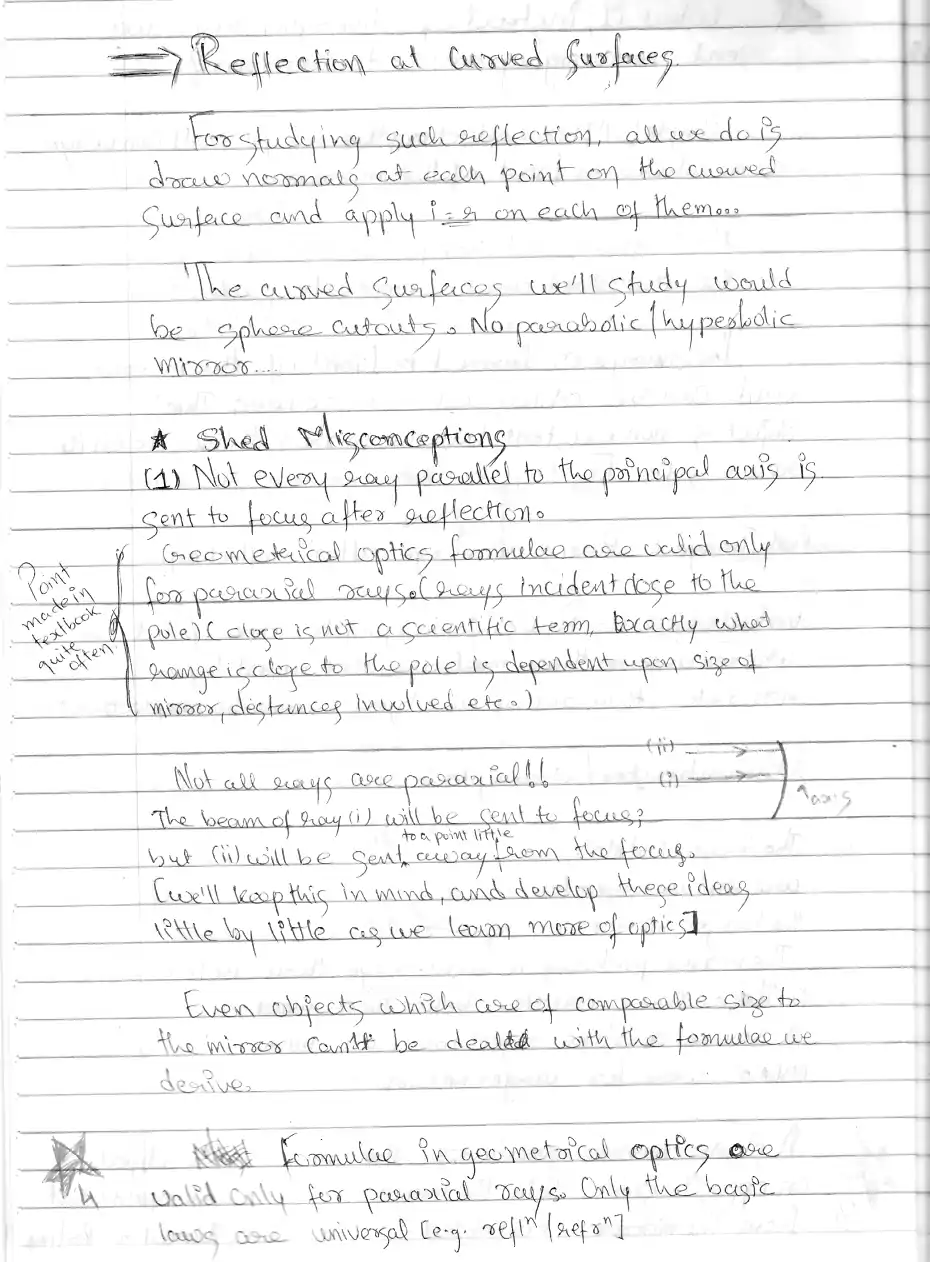 ⇒ Reflection at Curved Surfaces.
For studying such reflection, all we do is
draw normals at each point on the curved
Surface and apply i=r on each of them...
The curved surfaces we'll study would
be sphere cutouts. No parabolic/hyperbolic
mirror....
★ Shed Misconceptions
(1) Not every ray parallel to the principal axis is
sent to focus after reflection.
Geometrical optics formulae are valid only
for paraxial rays. (rays incident close to the
pole) (close is not a scientific term, Exactly what
range is close to the pole is dependent upon size of
mirror, distances involved etc.)
Point
made in
textbook
quite
often.
(ii)
(i)
axis
Not all rays are paraxial!!
The beam of ray (i) will be sent to focus;
to a point little
but (ii) will be sent away from the focus.
[we'll keep this in mind, and develop these ideas
little by little as we learn more of optics]
Even objects which are of comparable size to
the mirror can't be dealt with the formulae we
derive.
Formulae in geometrical optics are
valid only for paraxial rays. Only the basic
laws are universal [e.g. reflⁿ/refrⁿ]